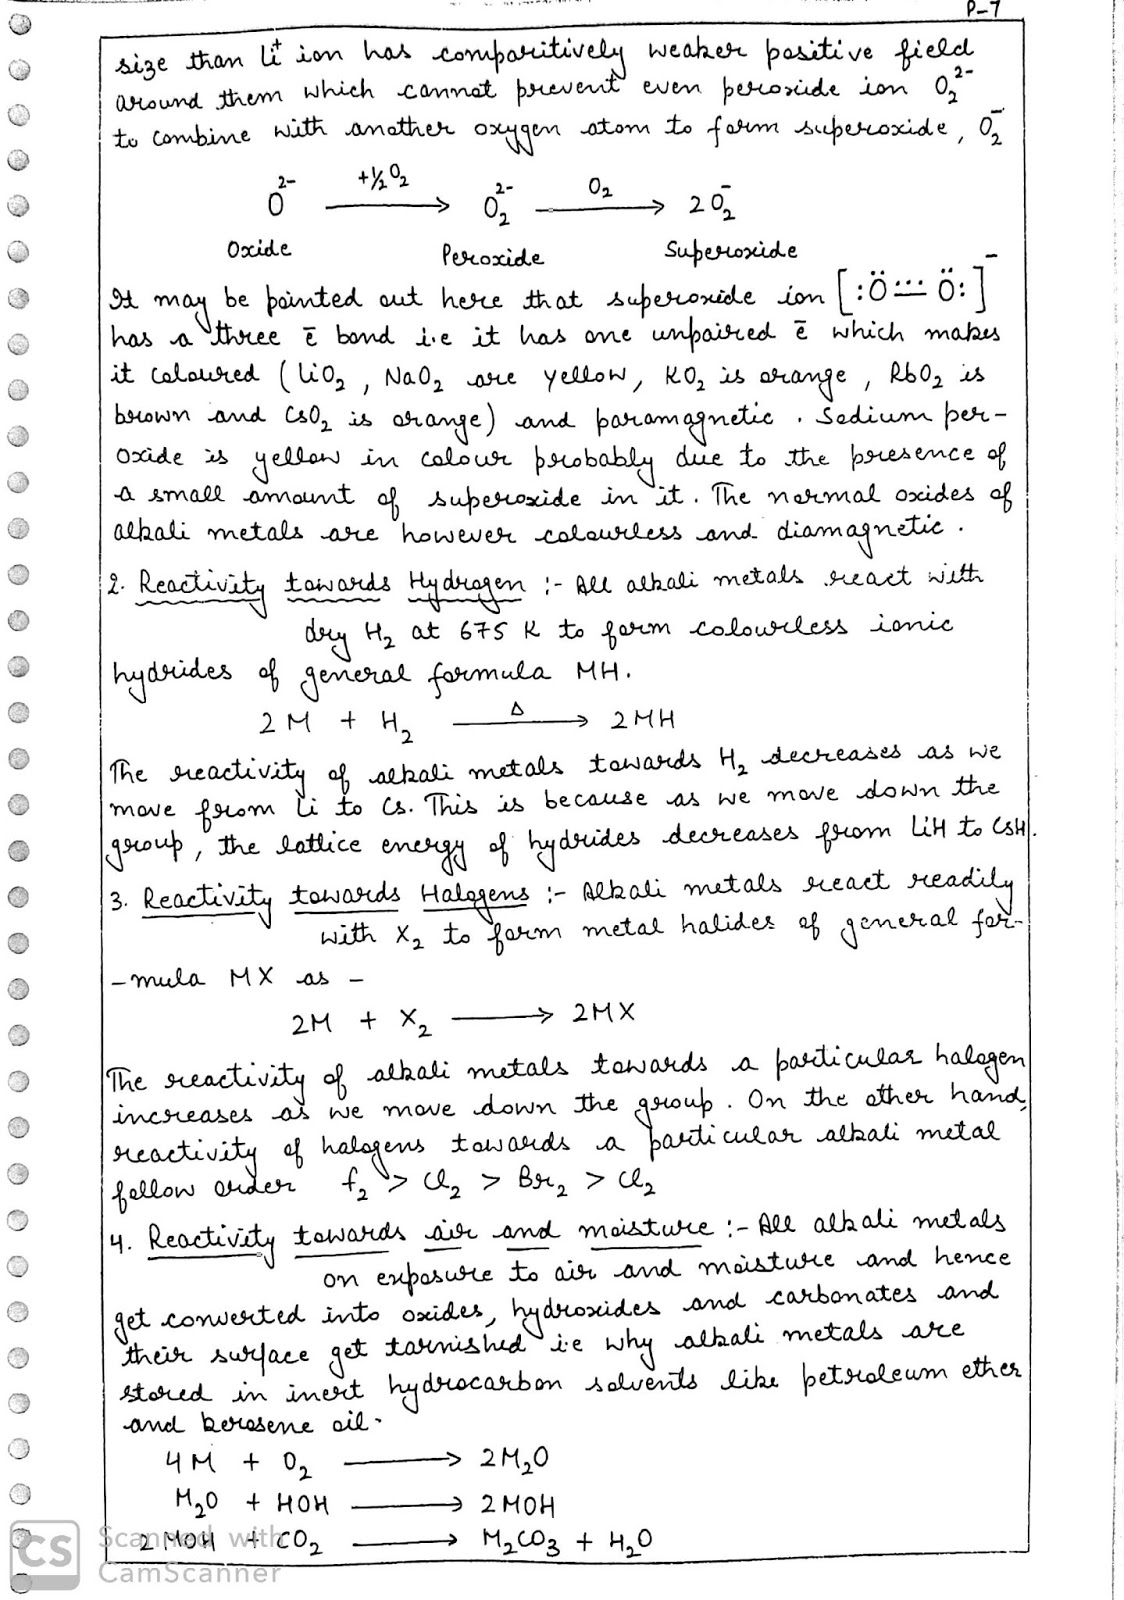 P-7
size than Li⁺ ion has comparitively weaker positive field
around them which cannot prevent even peroxide ion O₂²⁻
to combine with another oxygen atom to form superoxide, O₂⁻
O²⁻ —(+½O₂)→ O₂²⁻ —(O₂)→ 2O₂⁻
Oxide Peroxide Superoxide
It may be pointed out here that superoxide ion [:Ö⩧Ö:]⁻
has a three ē bond i.e it has one unpaired ē which makes
it coloured (LiO₂, NaO₂ are yellow, KO₂ is orange, RbO₂ is
brown and CsO₂ is orange) and paramagnetic. Sodium per-
oxide is yellow in colour probably due to the presence of
a small amount of superoxide in it. The normal oxides of
alkali metals are however colourless and diamagnetic.
2. Reactivity towards Hydrogen :- All alkali metals react with
dry H₂ at 675 K to form colourless ionic
hydrides of general formula MH.
2M + H₂ —(Δ)→ 2MH
The reactivity of alkali metals towards H₂ decreases as we
move from Li to Cs. This is because as we move down the
group, the lattice energy of hydrides decreases from LiH to CsH.
3. Reactivity towards Halogens :- Alkali metals react readily
with X₂ to form metal halides of general for-
-mula MX as -
2M + X₂ ⟶ 2MX
The reactivity of alkali metals towards a particular halogen
increases as we move down the group. On the other hand,
reactivity of halogens towards a particular alkali metal
follow order f₂ > Cl₂ > Br₂ > Cl₂
4. Reactivity towards air and moisture :- All alkali metals
on exposure to air and moisture and hence
get converted into oxides, hydroxides and carbonates and
their surface get tarnished i.e why alkali metals are
stored in inert hydrocarbon solvents like petroleum ether
and kerosene oil.
4M + O₂ ⟶ 2M₂O
M₂O + HOH ⟶ 2MOH
2MOH + CO₂ ⟶ M₂CO₃ + H₂O
CS Scanned with
CamScanner